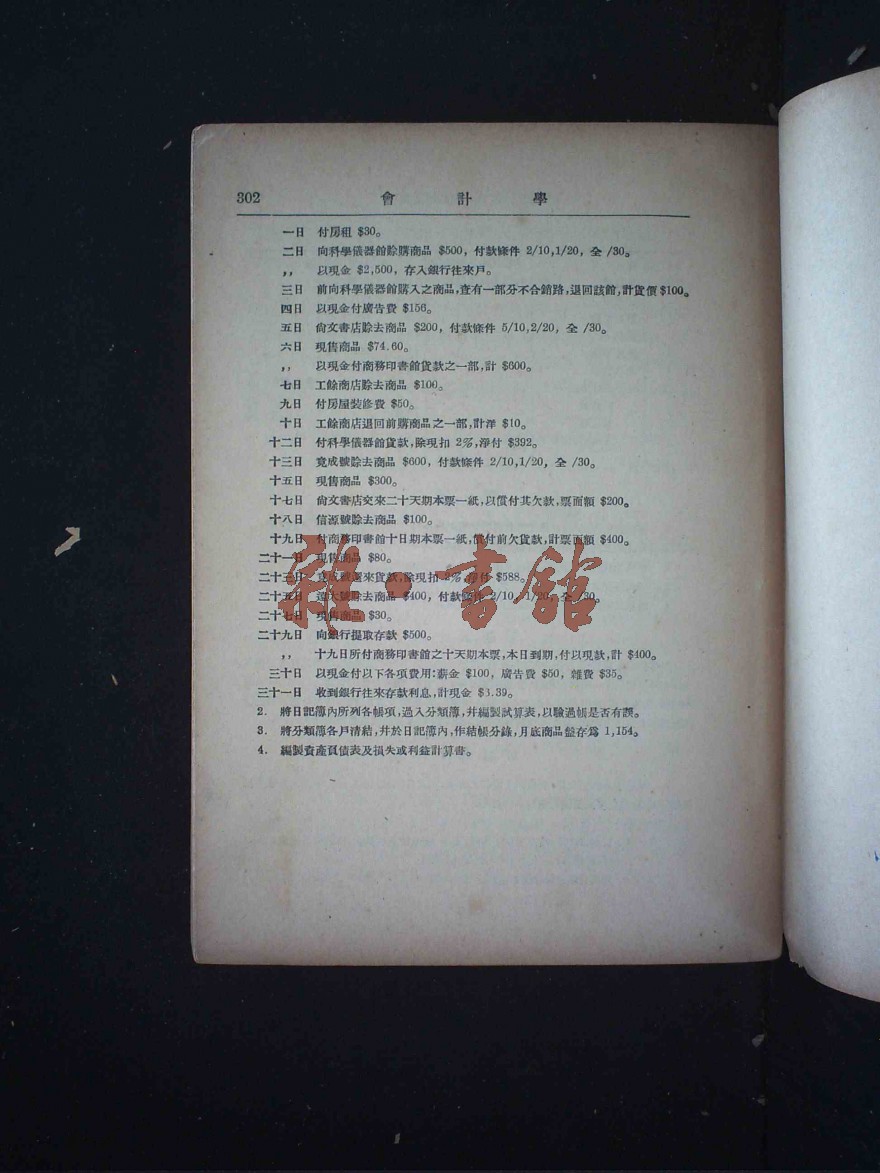 302 會計學
一日 付房租 $30。
二日 向科學儀器館賒購商品 $500, 付款條件 2/10,1/20, 全 /30。
,, 以現金 $2,500, 存入銀行往來戶。
三日 前向科學儀器館購入之商品,查有一部分不合銷路,退回該館,計貨價 $100。
四日 以現金付廣告費 $156。
五日 尙文書店賒去商品 $200, 付款條件 5/10,2/20, 全 /30。
六日 現售商品 $74.60。
,, 以現金付商務印書館貨款之一部,計 $600。
七日 工餘商店賒去商品 $100。
九日 付房屋裝修費 $50。
十日 工餘商店退回前購商品之一部,計洋 $10。
十二日 付科學儀器館貨款,除現扣 2%,淨付 $392。
十三日 竟成號賒去商品 $600, 付款條件 2/10,1/20, 全 /30。
十五日 現售商品 $300。
十七日 尙文書店交來二十天期本票一紙,以償付其欠款,票面額 $200。
十八日 信源號賒去商品 $100。
十九日 付商務印書館十日期本票一紙,償付前欠貨款,計票面額 $400。
二十一日 現售商品 $80。
二十三日 竟成號還來貨款,除現扣 2%,淨付 $588。
二十五日 號賒去商品 $400, 付款條件 2/10, 1/20, 全 /30。
二十七日 現售商品 $30。
二十九日 向銀行提取存款 $500。
,, 十九日所付商務印書館之十天期本票,本日到期,付以現款,計 $400。
三十日 以現金付以下各項費用:薪金 $100, 廣告費 $50, 雜費 $35。
三十一日 收到銀行往來存款利息,計現金 $3.39。
2. 將日記簿內所列各帳項,過入分類簿,幷編製試算表,以驗過帳是否有誤。
3. 將分類簿各戶清結,幷於日記簿內,作結帳分錄,月底商品盤存爲 1,154。
4. 編製資產負債表及損失或利益計算書。
雜·書館